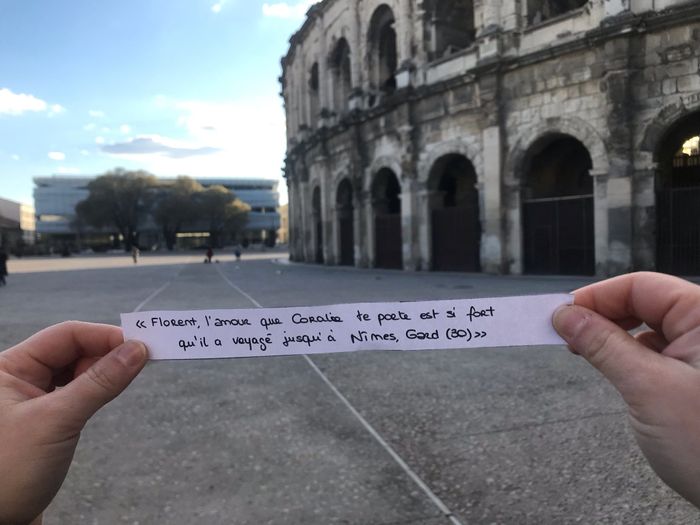 « Florent, l'amour que Coralie te porte est si fort
qu'il a voyagé jusqu'à Nîmes, Gard (30) »